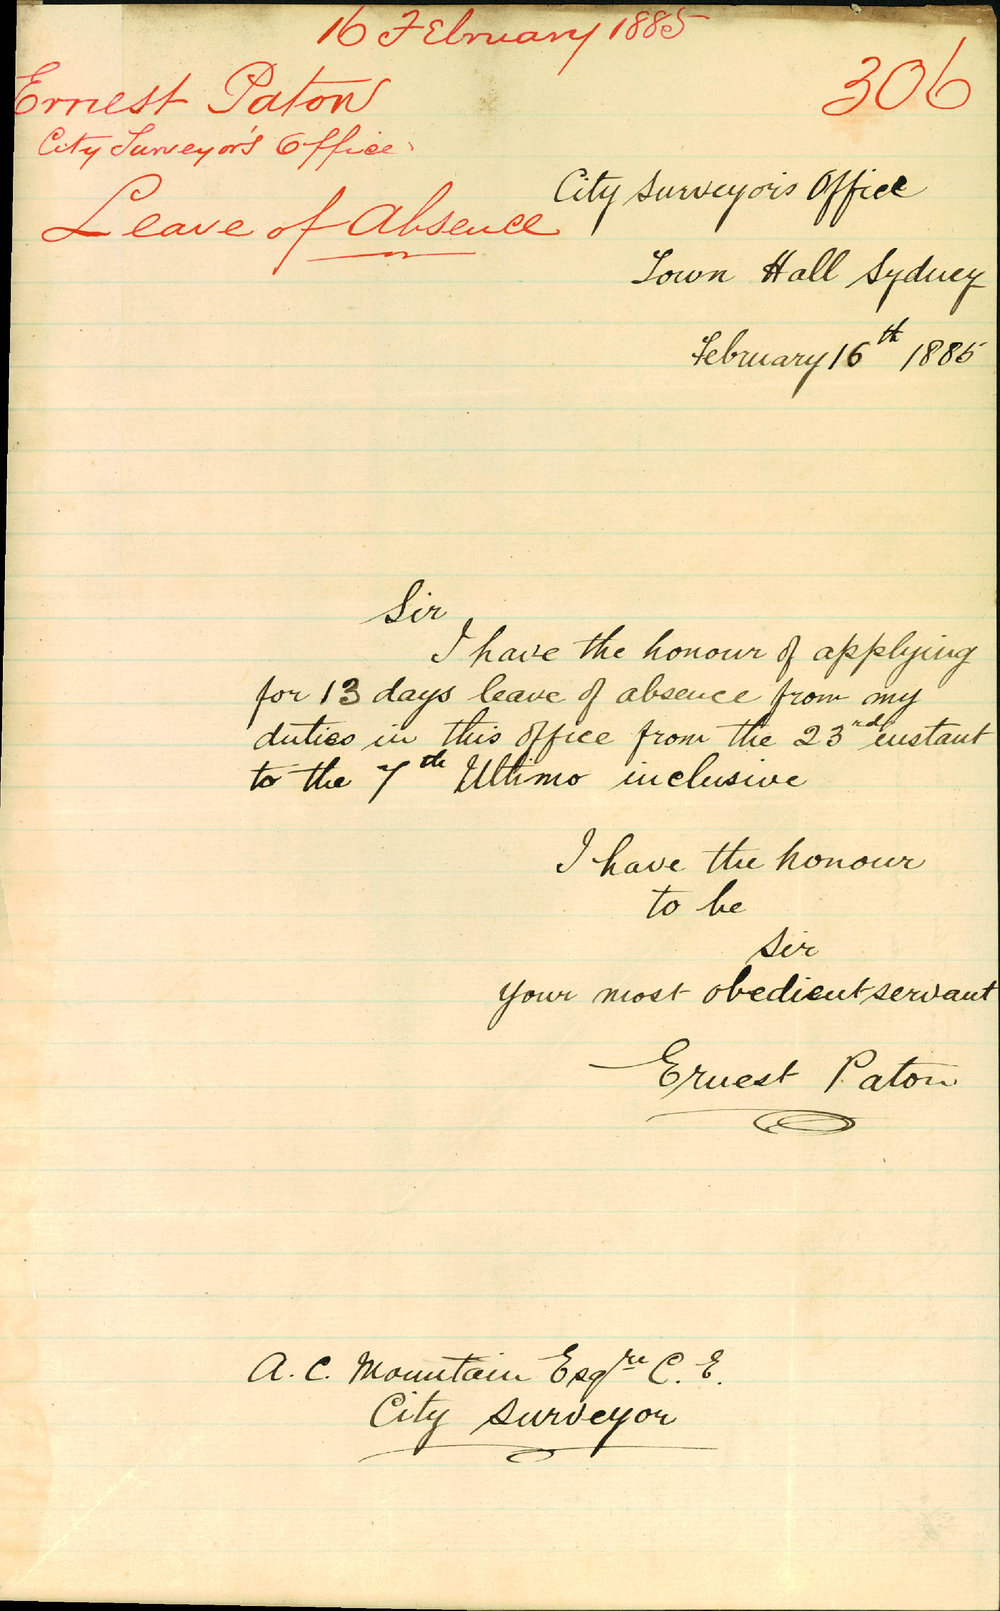 16 February 1885
306
Ernest Paton
City Surveyor's Office
Leave of Absence
City Surveyors Office
Town Hall Sydney
February 16th 1885
Sir
I have the honour of applying
for 13 days leave of absence from my
duties in this office from the 23rd instant
to the 7th Ultimo inclusive
I have the honour
to be
Sir
Your most obedient servant
Ernest Paton
A. C. Mountain Esqre C. E.
City Surveyor